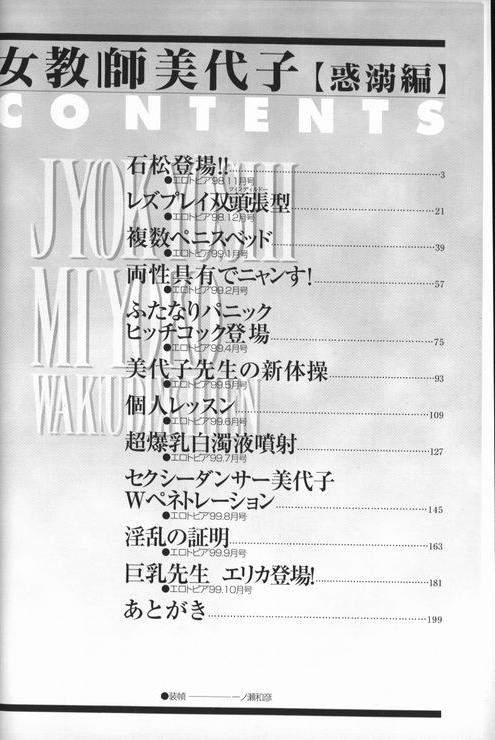 女教師美代子【惑溺編】
CONTENTS
JYOKYOSHI
MIYOKO
WAKUDEKIHEN
石松登場!! 3
●エロトピア'98.11月号
レズプレイ双頭張型 21
●エロトピア'98.12月号
複数ペニスベッド 39
●エロトピア'99.1月号
両性具有でニャンす! 57
●エロトピア'99.2月号
ふたなりパニック
ヒッチコック登場 75
●エロトピア'99.4月号
美代子先生の新体操 93
●エロトピア'99.5月号
個人レッスン 109
●エロトピア'99.6月号
超爆乳白濁液噴射 127
●エロトピア'99.7月号
セクシーダンサー美代子
Wペネトレーション 145
●エロトピア'99.8月号
淫乱の証明 163
●エロトピア'99.9月号
巨乳先生 エリカ登場! 181
●エロトピア'99.10月号
あとがき 199
●装幀 ――― 一ノ瀬和彦